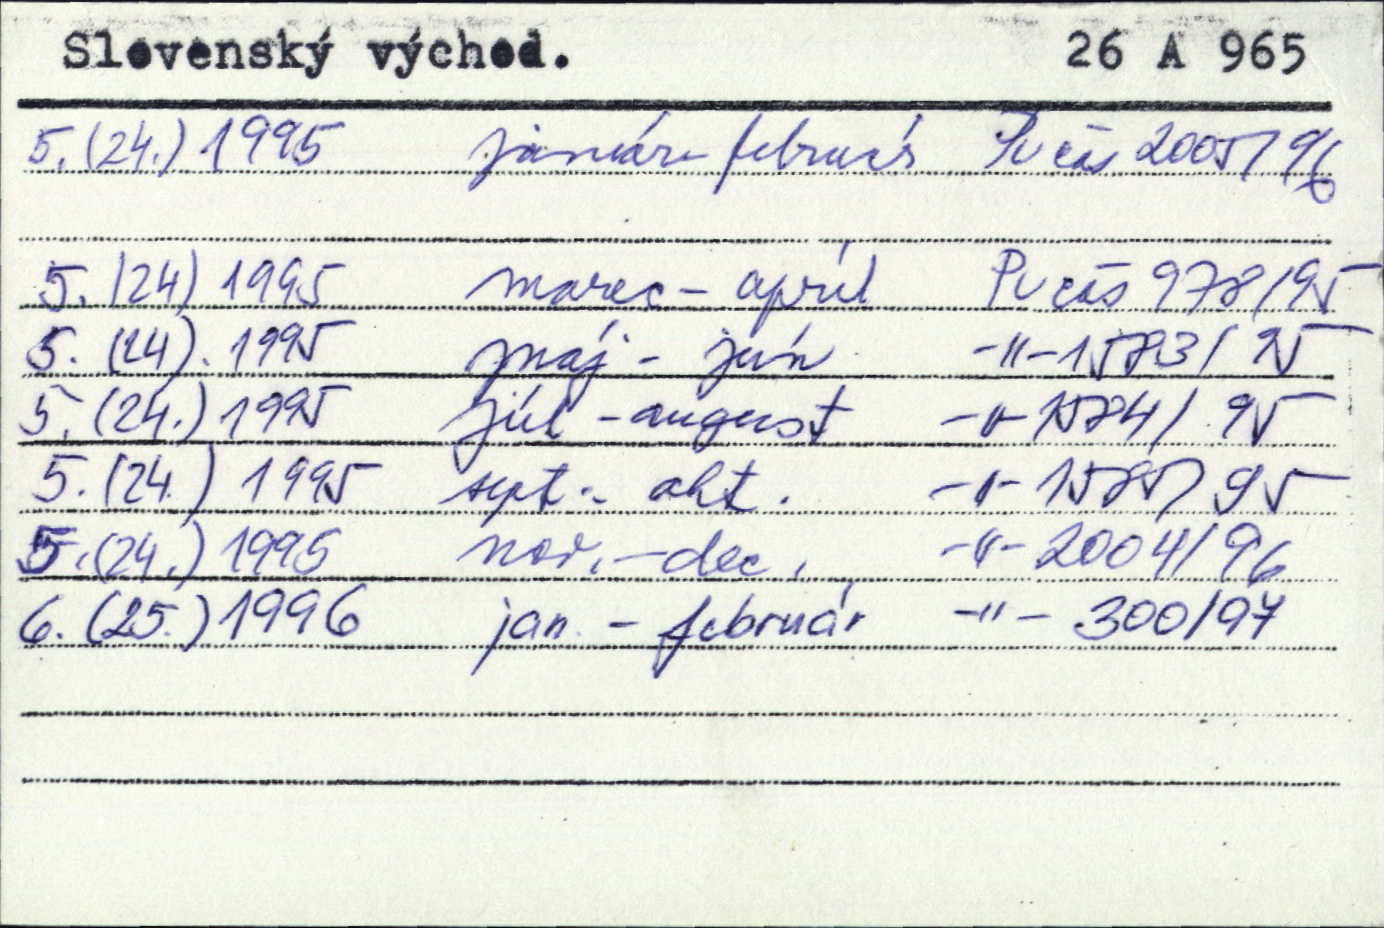 Slovenský východ. 26 A 965
5. (24.) 1995 január-február Pv čas 2005/96
5. (24) 1995 marec - apríl Pv čas 978/95
5. (24). 1995 máj - jún -"- 1583/95
5. (24.) 1995 júl - august -"- 1584/95
5. (24.) 1995 sept. - okt. -"- 1585/95
5. (24.) 1995 nov. - dec. -"- 2004/96
6. (25.) 1996 jan. - február -"- 300/97